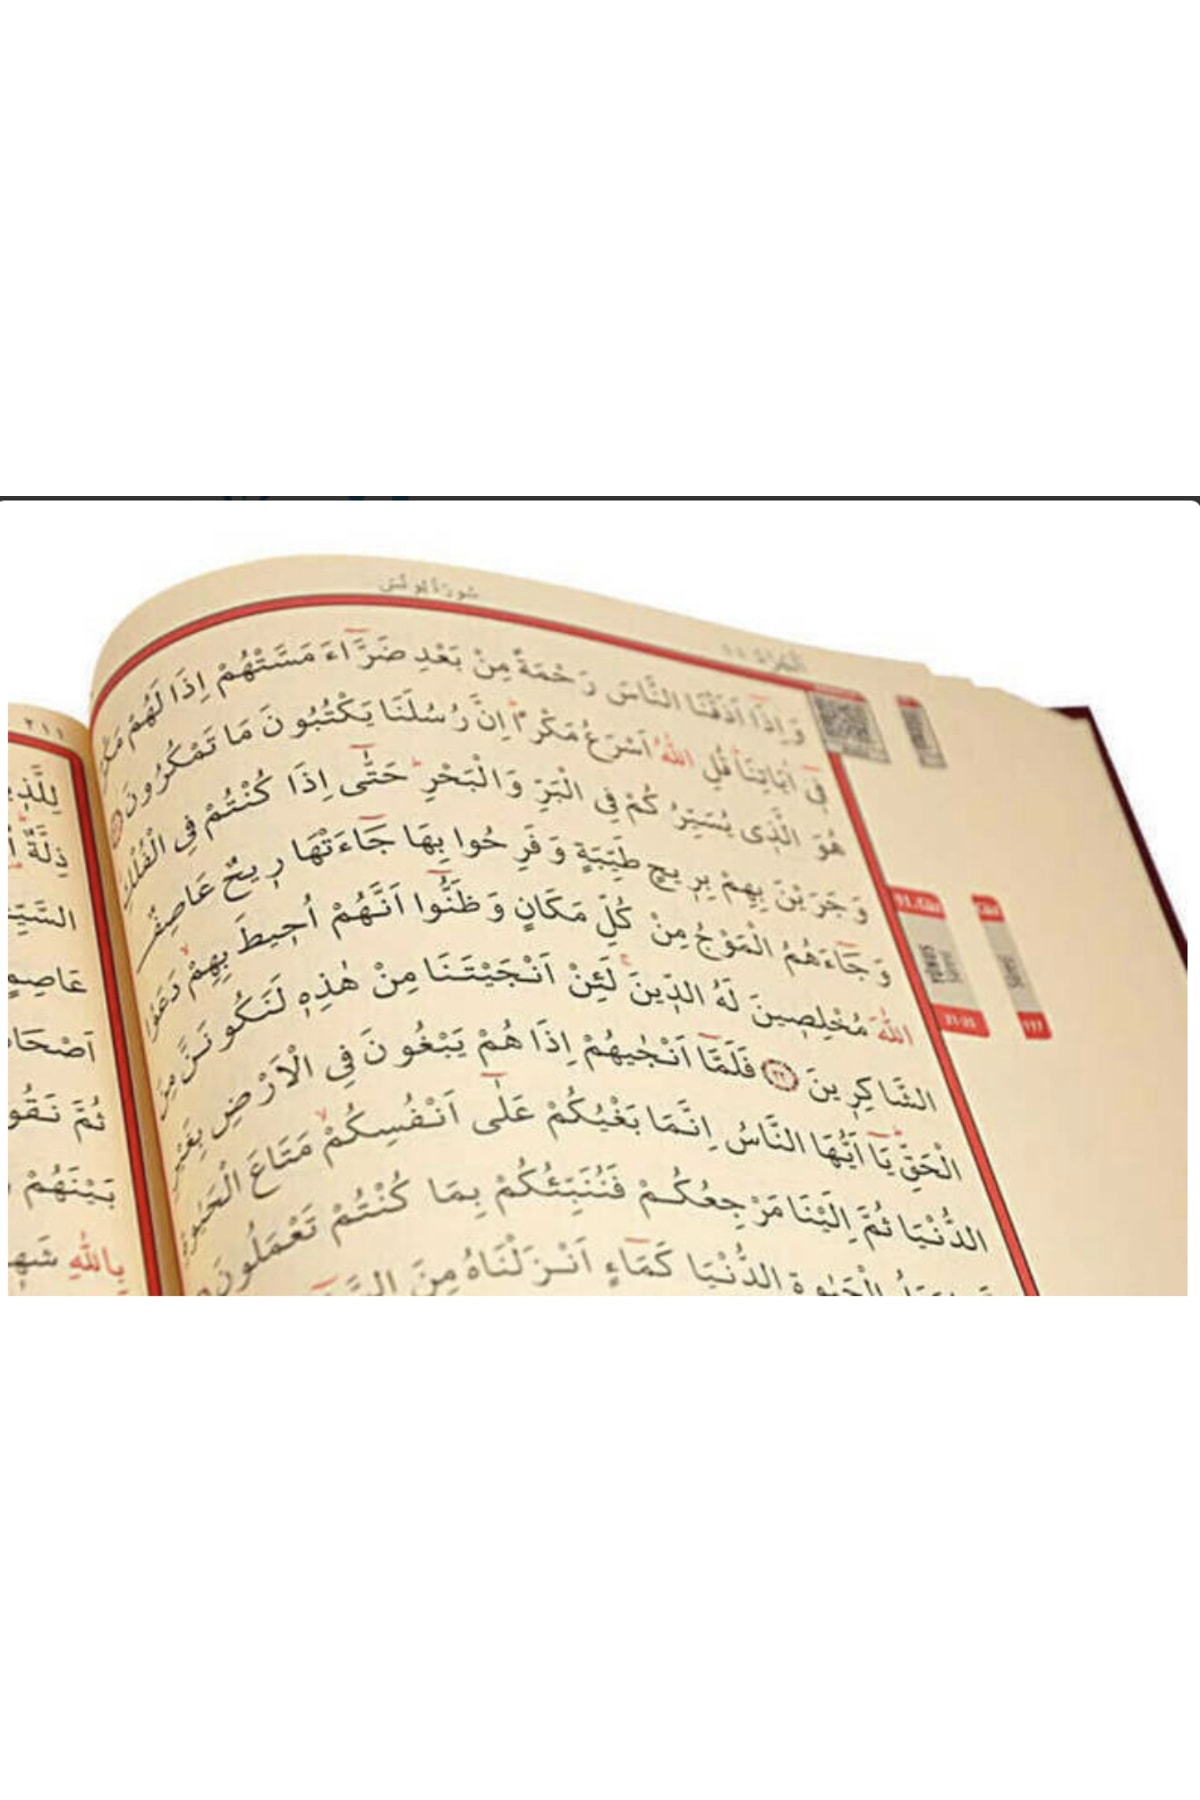 سُورَةُ يُونُسَ
وَاِذَٓا اَذَقْنَا النَّاسَ رَحْمَةً مِنْ بَعْدِ ضَرَّٓاءَ مَسَّتْهُمْ اِذَا لَهُمْ مَكْرٌ
فِٓي اٰيَاتِنَا قُلِ اللّٰهُ اَسْرَعُ مَكْرًا اِنَّ رُسُلَنَا يَكْتُبُونَ مَا تَمْكُرُونَ
هُوَ الَّذِي يُسَيِّرُكُمْ فِي الْبَرِّ وَالْبَحْرِ حَتّٰٓى اِذَا كُنْتُمْ فِي الْفُلْكِ
وَجَرَيْنَ بِهِمْ بِرِيحٍ طَيِّبَةٍ وَفَرِحُوا بِهَا جَٓاءَتْهَا رِيحٌ عَاصِفٌ
وَجَٓاءَهُمُ الْمَوْجُ مِنْ كُلِّ مَكَانٍ وَظَنُّٓوا اَنَّهُمْ اُحِيطَ بِهِمْ دَعَوُا
اللّٰهَ مُخْلِصِينَ لَهُ الدِّينَ لَئِنْ اَنْجَيْتَنَا مِنْ هٰذِهِ لَنَكُونَنَّ مِنَ
الشَّاكِرِينَ ٢٢ فَلَمَّٓا اَنْجٰيهُمْ اِذَا هُمْ يَبْغُونَ فِي الْاَرْضِ بِغَيْرِ
الْحَقِّ يَٓا اَيُّهَا النَّاسُ اِنَّمَا بَغْيُكُمْ عَلٰٓى اَنْفُسِكُمْ مَتَاعَ الْحَيٰوةِ
الدُّنْيَا ثُمَّ اِلَيْنَا مَرْجِعُكُمْ فَنُنَبِّئُكُمْ بِمَا كُنْتُمْ تَعْمَلُونَ
الْحَيٰوةِ الدُّنْيَا كَمَٓاءٍ اَنْزَلْنَاهُ مِنَ
21-25
٢١١
ذِلَّةٌ
عَاصِمٍ
ثُمَّ نَقُو
بَيْنَهُمْ
بِاللّٰهِ